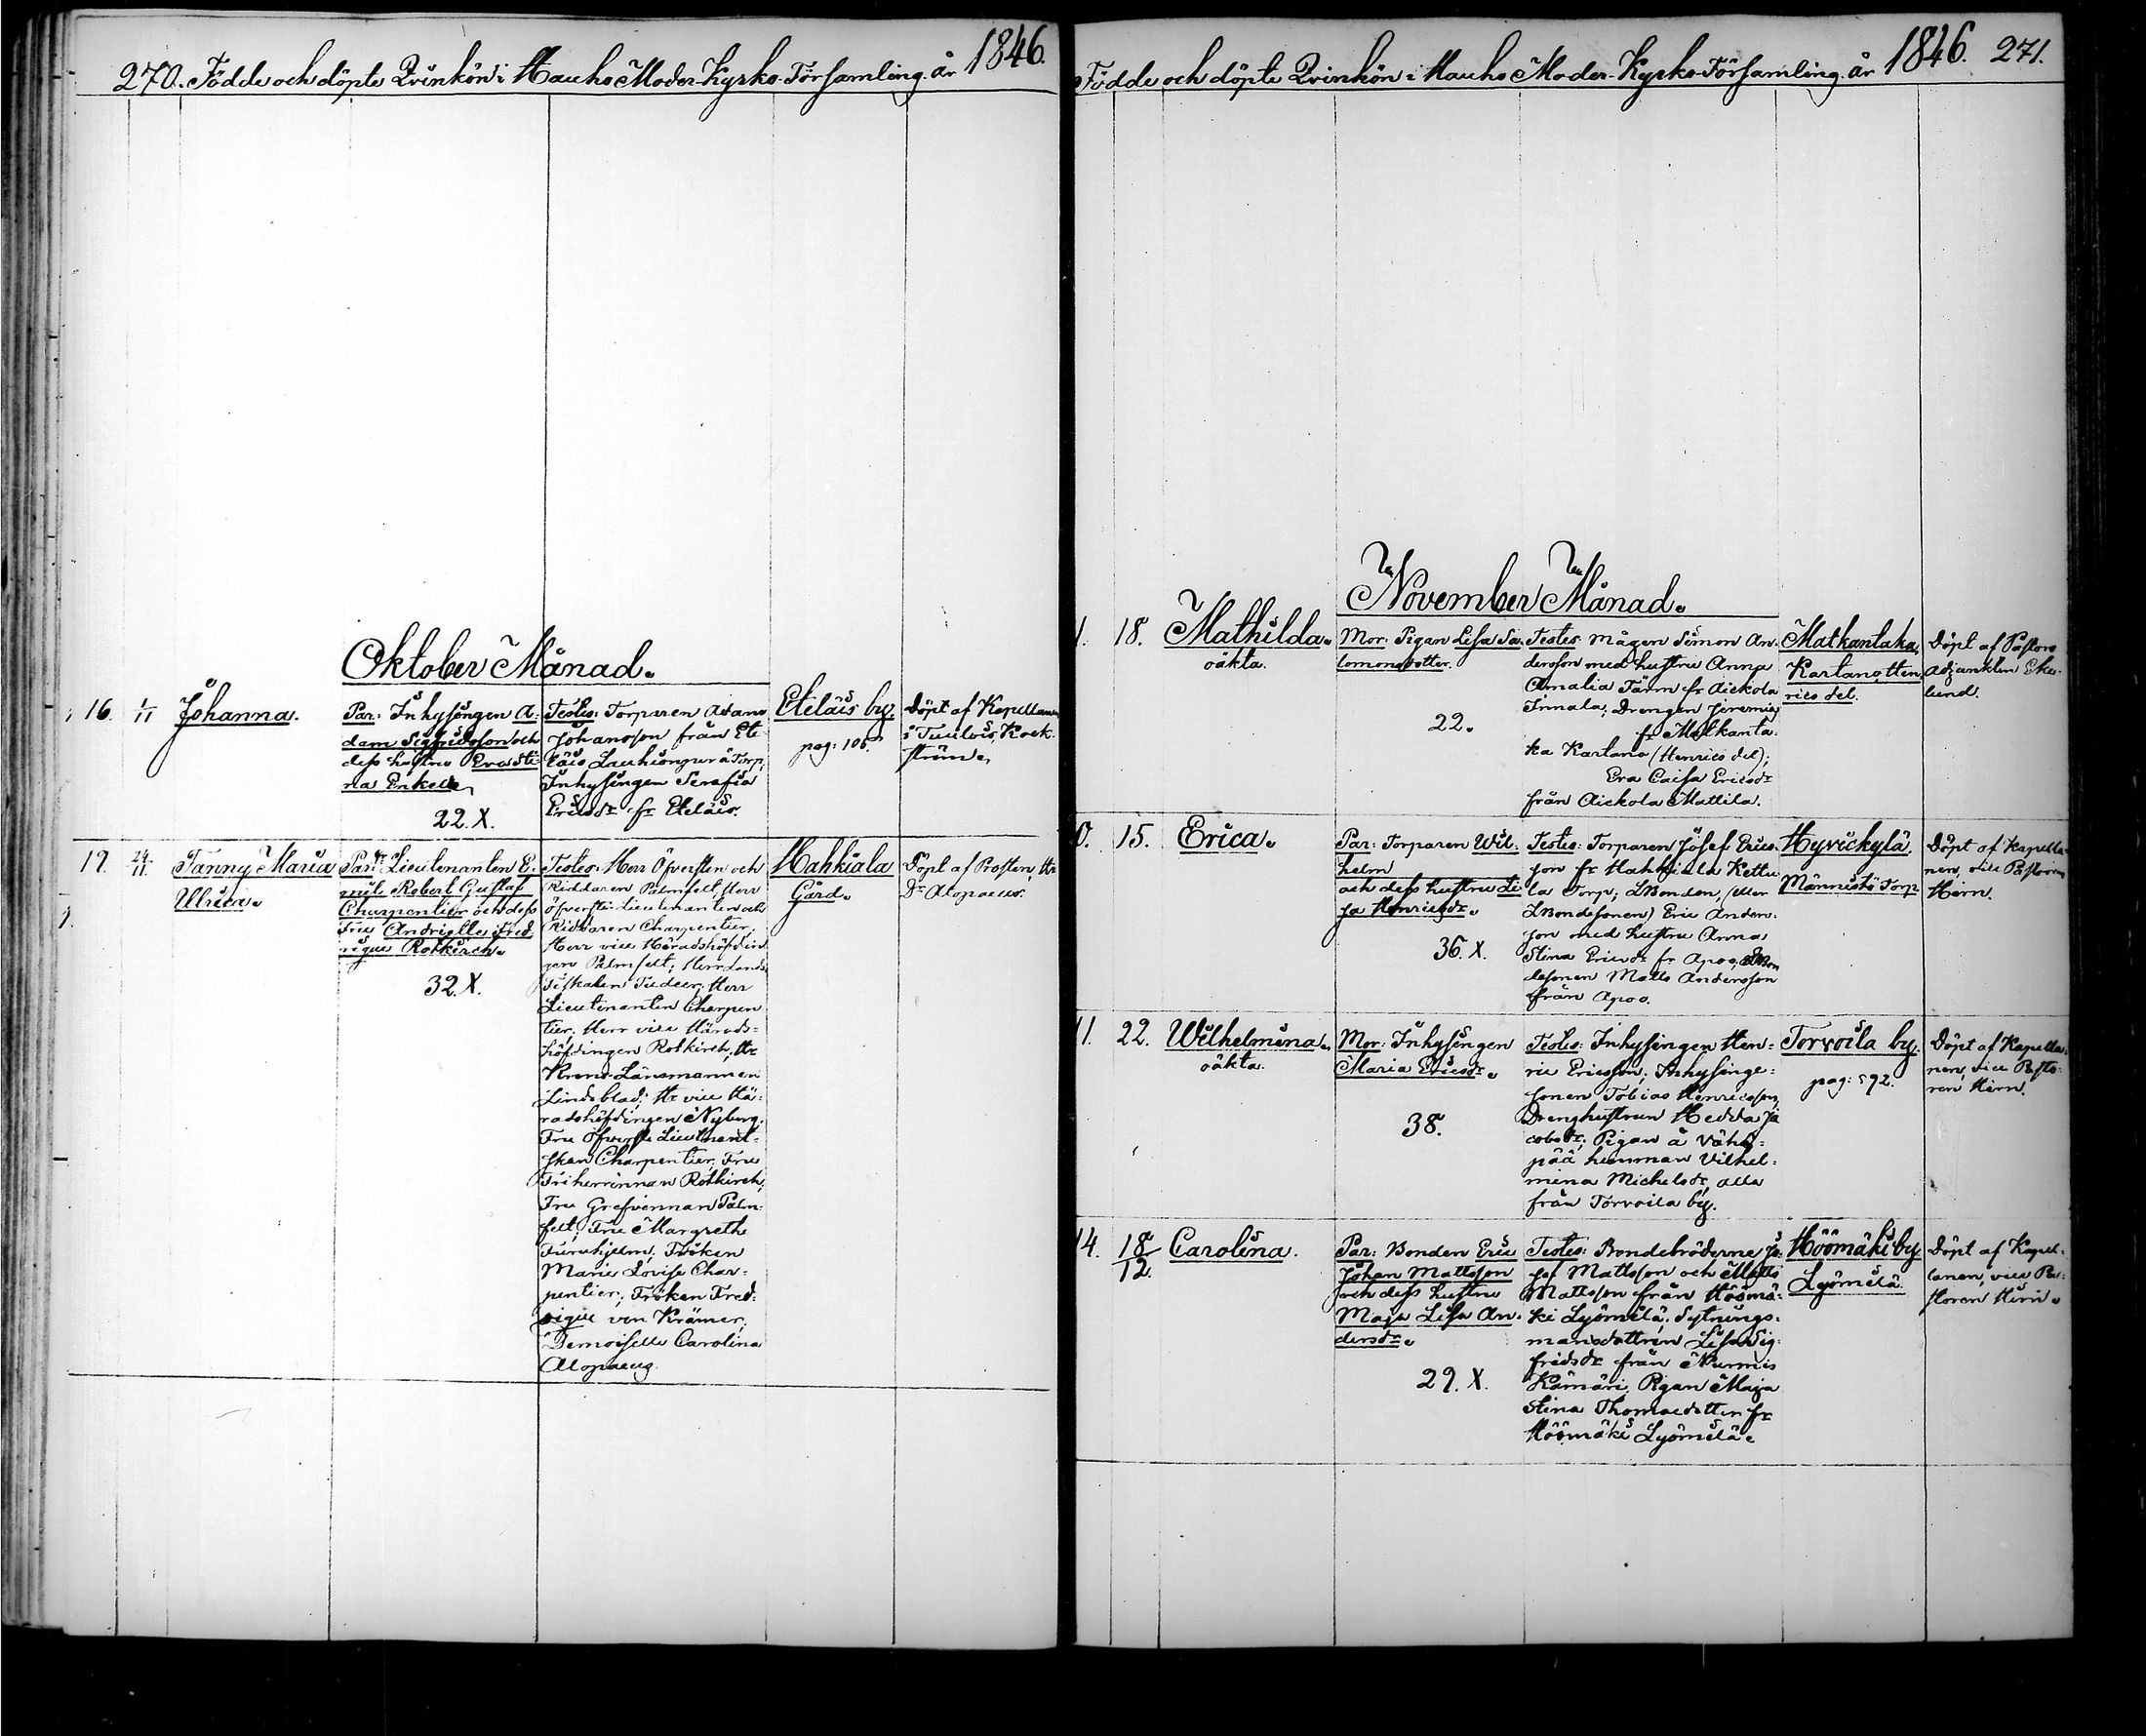 270. Födde och döpte Qvinkön i Hauho Moder-Kyrko-Församling. år 1846.
Oktober Månad.
16. 1/11 Johanna.
Par: Inhysingen A-
dam Sigfridsson och
dess hustru Eva Sti-
na Enkell
22. X.
Testes: Torparen Adam
Johansson från Ete
läis Lauhiongur å Torp,
Inhysingen Serafia
Ericsdr fr Eteläis.
Eteläis by.
pag: 106.
Döpt af Kapellanen
i Tuulois, Kock-
ström.
17. 24/11. Fanny Maria
Ulrica.
Par: Lieutenanten E-
mil Robert Gustaf
Charpentier och dess
Fru Andriette Fred
rique Rotkirch.
32. X.
Testes: Herr Öfversten och
Riddaren Palmfelt, Herr
Öfverste-Lieutenanten och
Riddaren Charpentier,
Herr vice Häradshöfdin
gen Palmfelt; Herr Lands
Fiskalen Tudeer, Herr
Lieutenanten Charpen
tier, Herr vice Härads-
höfdingen Rotkirch, Hr
Krono Länsmannen
Lindsblad; Hr vice Hä-
radshöfdingen Nyberg.
Fru Öfverste Lieutnant-
skan Charpentier, Fru
Friherrinnan Rotkirch;
Fru Grefvinnan Palm-
felt; Fru Margretha
Furuhjelm, Fröken
Marie Lovise Char-
pentier; Fröken Fred-
rique von Krämer;
Demoiselle Carolina
Alopaeus.
Hahkiala
Gård.
Döpt af Prosten, Hr
Dr Alopaeus.
Födde och döpte Qvinkön i Hauho Moder-Kyrko-Församling. år 1846. 271.
November Månad.
1. 18. Mathilda.
oäkta.
Mor: Pigan Lisa Sa-
lomonsdotter.
22.
Testes: Mågen Simon An-
dersson med hustru Anna
Amalia Tärn fr Aickola
Inmala; Drengen Jeremias
fr Matkanta-
ka Kartano (Henrics del);
Eva Caisa Ericsdr
från Aickola Mattila.
Matkantaka,
Kartano, Hen
rics del.
Döpt af Pastors
Adjunkten Eke-
lund.
0. 15. Erica.
Par: Torparen Wil-
helm
och dess hustru Li
sa Henricsdr.
36. X.
Testes: Torparen Josef Erics-
son fr Hahkiala Kettu
la Torp; LBonden, (eller
LBondesonen) Eric Anders-
son med hustru Anna
Stina Ericsdr fr Apoo, LBon
desonen Matts Andersson
från Apoo.
Hyvickylä.
Männistö Torp
Döpt af Kapella-
nen, vice Pastoren
Hirn.
11. 22. Wilhelmina.
oäkta.
Mor: Inhysingen
Maria Ericsdr.
38.
Testes: Inhysingen Hen-
ric Ericsson; Inhysinge-
sonen Tobias Henricsson,
Drenghustrun Hedda Ja
cobsdr; Pigan å Vähä-
pää hemman Vilhel-
mina Michelsdr, alla
från Torvoila by.
Torvoila by.
pag: 592.
Döpt af Kapella-
nen, vice Pasto-
ren Hirn.
14. 18/12. Carolina.
Par: Bonden Eric
Johan Mattsson
och dess hustru
Maja Lisa An-
dersdr.
29. X.
Testes: Bondebröderne Jo-
sef Mattsson och Matts
Mattsson från Höömä-
ki Lyömilä, Sytnings-
mansdottren Lisa Sig-
fridsdr från Nurmis
Kämäri, Pigan Maja
Stina Thomaedotter fr
Höömäki Lyömilä.
Höömäki by
Lyömilä.
Döpt af Kapel-
lanen, vice Pa-
storen Hirn.